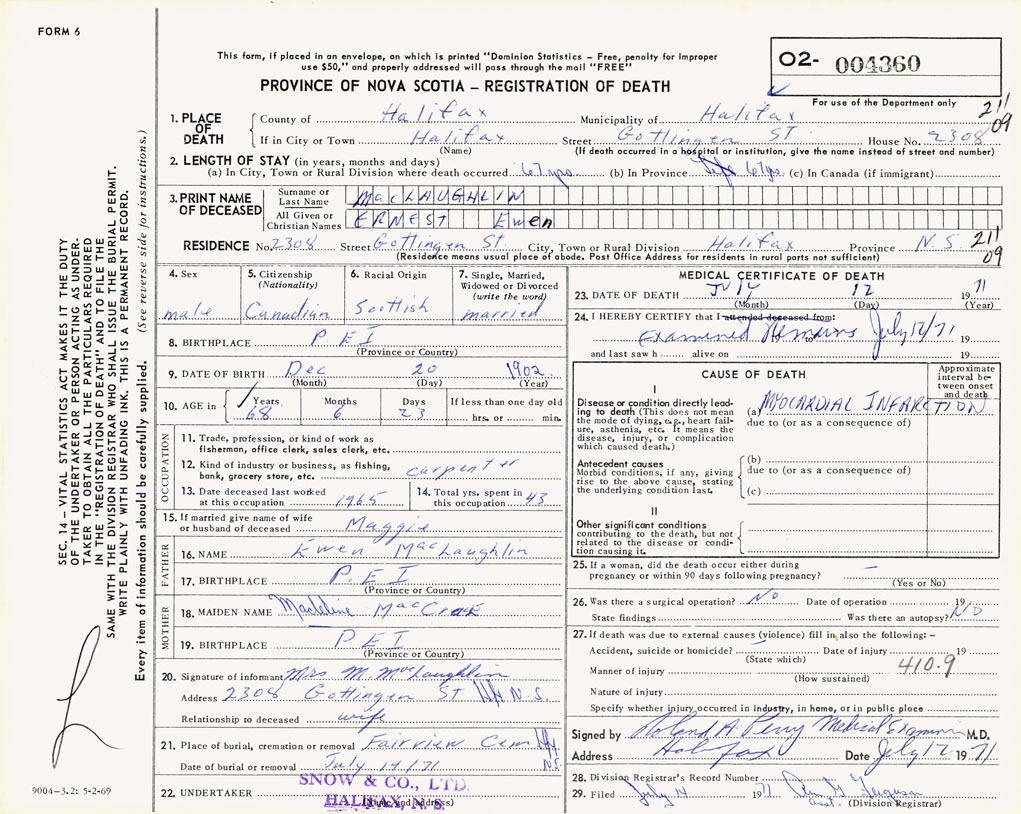 FORM 6
This form, if placed in an envelope, on which is printed "Dominion Statistics – Free, penalty for improper
use $50," and properly addressed will pass through the mail "FREE"
O2- 004360
PROVINCE OF NOVA SCOTIA – REGISTRATION OF DEATH
For use of the Department only
211
09
1. PLACE OF DEATH
County of Halifax Municipality of Halifax
If in City or Town Halifax Street Gottingen ST House No. 2308
(Name) (If death occurred in a hospital or institution, give the name instead of street and number)
2. LENGTH OF STAY (in years, months and days)
(a) In City, Town or Rural Division where death occurred 67 yrs (b) In Province 67 yrs. (c) In Canada (if immigrant)
3. PRINT NAME OF DECEASED
Surname or Last Name MacLAUGHLIN
All Given or Christian Names ERNEST Ewen
RESIDENCE No. 2308 Street Gottingen St City, Town or Rural Division Halifax Province N S 211
09
(Residence means usual place of abode. Post Office Address for residents in rural parts not sufficient)
4. Sex
male
5. Citizenship
(Nationality)
Canadian
6. Racial Origin
Scottish
7. Single, Married,
Widowed or Divorced
(write the word)
married
8. BIRTHPLACE P E I
(Province or Country)
9. DATE OF BIRTH Dec 20 1902
(Month) (Day) (Year)
10. AGE in Years 68 Months 6 Days 23 If less than one day old
hrs. or min.
OCCUPATION
11. Trade, profession, or kind of work as
fisherman, office clerk, sales clerk, etc.
12. Kind of industry or business, as fishing,
bank, grocery store, etc. carpenter
13. Date deceased last worked
at this occupation 1965
14. Total yrs. spent in
this occupation 43
15. If married give name of wife
or husband of deceased Maggie
FATHER
16. NAME Ewen MacLaughlin
17. BIRTHPLACE P E I
(Province or Country)
MOTHER
18. MAIDEN NAME Madeline
19. BIRTHPLACE P E I
(Province or Country)
20. Signature of informant Mrs M. MacLaughlin
Address 2308 Gottingen ST Hfx N.S.
Relationship to deceased wife
21. Place of burial, cremation or removal Fairview Cem Hfx
Date of burial or removal July 14/71 N.S.
22. UNDERTAKER SNOW & CO., LTD.
HALIFAX, N. S.
(Name and address)
MEDICAL CERTIFICATE OF DEATH
23. DATE OF DEATH July 12 1971
(Month) (Day) (Year)
24. I HEREBY CERTIFY that I attended deceased from:
Examined Remains July 12/71
19 to 19
and last saw h alive on 19
CAUSE OF DEATH
Approximate
interval be-
tween onset
and death
I
Disease or condition directly lead-
ing to death (This does not mean
the mode of dying, e.g., heart fail-
ure, asthenia, etc. It means the
disease, injury, or complication
which caused death.)
(a) MYOCARDIAL INFARCTION
due to (or as a consequence of)
Antecedent causes
Morbid conditions, if any, giving
rise to the above cause, stating
the underlying condition last.
(b)
due to (or as a consequence of)
(c)
II
Other significant conditions
contributing to the death, but not
related to the disease or condi-
tion causing it.
25. If a woman, did the death occur either during
pregnancy or within 90 days following pregnancy? –
(Yes or No)
26. Was there a surgical operation? No Date of operation 19
State findings Was there an autopsy? No
27. If death was due to external causes (violence) fill in also the following: –
Accident, suicide or homicide? Date of injury 19
(State which)
Manner of injury 410.9
(How sustained)
Nature of injury
Specify whether injury occurred in industry, in home, or in public place
Signed by Roland A Perry Medical Examiner M.D.
Address Halifax Date July 12 1971
28. Division Registrar's Record Number
29. Filed July 14 1971 Ferguson
asst. (Division Registrar)
SEC. 14 – VITAL STATISTICS ACT MAKES IT THE DUTY
OF THE UNDERTAKER OR PERSON ACTING AS UNDER-
TAKER TO OBTAIN ALL THE PARTICULARS REQUIRED
IN THE "REGISTRATION OF DEATH" AND TO FILE THE
SAME WITH THE DIVISION REGISTRAR WHO SHALL ISSUE THE BURIAL PERMIT.
WRITE PLAINLY WITH UNFADING INK. THIS IS A PERMANENT RECORD.
Every item of information should be carefully supplied. (See reverse side for instructions.)
9004-3.2: 5-2-69